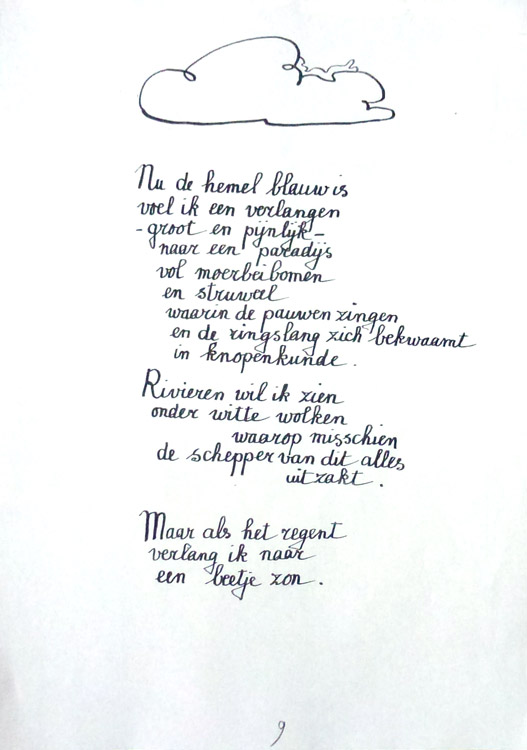 Nu de hemel blauw is
voel ik een verlangen
- groot en pijnlijk -
naar een paradijs
vol moerbeibomen
en struweel
waarin de pauwen zingen
en de ringslang zich bekwaamt
in knopenkunde.
Rivieren wil ik zien
onder witte wolken
waarop misschien
de schepper van dit alles
uitzakt.
Maar als het regent
verlang ik naar
een beetje zon.
9